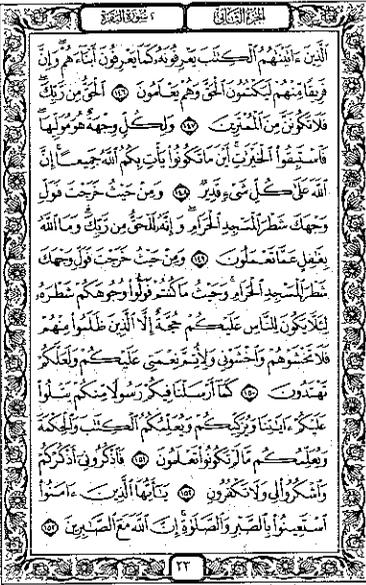 سورة البقرة ٢
الجزء الثاني
الذين ءاتينهم الكتب يعرفونه كما يعرفون أبناءهم وإن
فريقا منهم ليكتمون الحق وهم يعلمون ١٤٦ الحق من ربك
فلا تكونن من الممترين ١٤٧ ولكل وجهة هو موليها
فاستبقوا الخيرت أين ما تكونوا يأت بكم الله جميعا إن
الله على كل شيء قدير ١٤٨ ومن حيث خرجت فول
وجهك شطر المسجد الحرام وإنه للحق من ربك وما الله
بغفل عما تعملون ١٤٩ ومن حيث خرجت فول وجهك
شطر المسجد الحرام وحيث ما كنتم فولوا وجوهكم شطره
لئلا يكون للناس عليكم حجة إلا الذين ظلموا منهم
فلا تخشوهم واخشوني ولأتم نعمتي عليكم ولعلكم
تهتدون ١٥٠ كما أرسلنا فيكم رسولا منكم يتلوا
عليكم ءايتنا ويزكيكم ويعلمكم الكتب والحكمة
ويعلمكم ما لم تكونوا تعلمون ١٥١ فاذكروني أذكركم
واشكروا لي ولا تكفرون ١٥٢ يأيها الذين ءامنوا
استعينوا بالصبر والصلوة إن الله مع الصبرين ١٥٣
٢٣